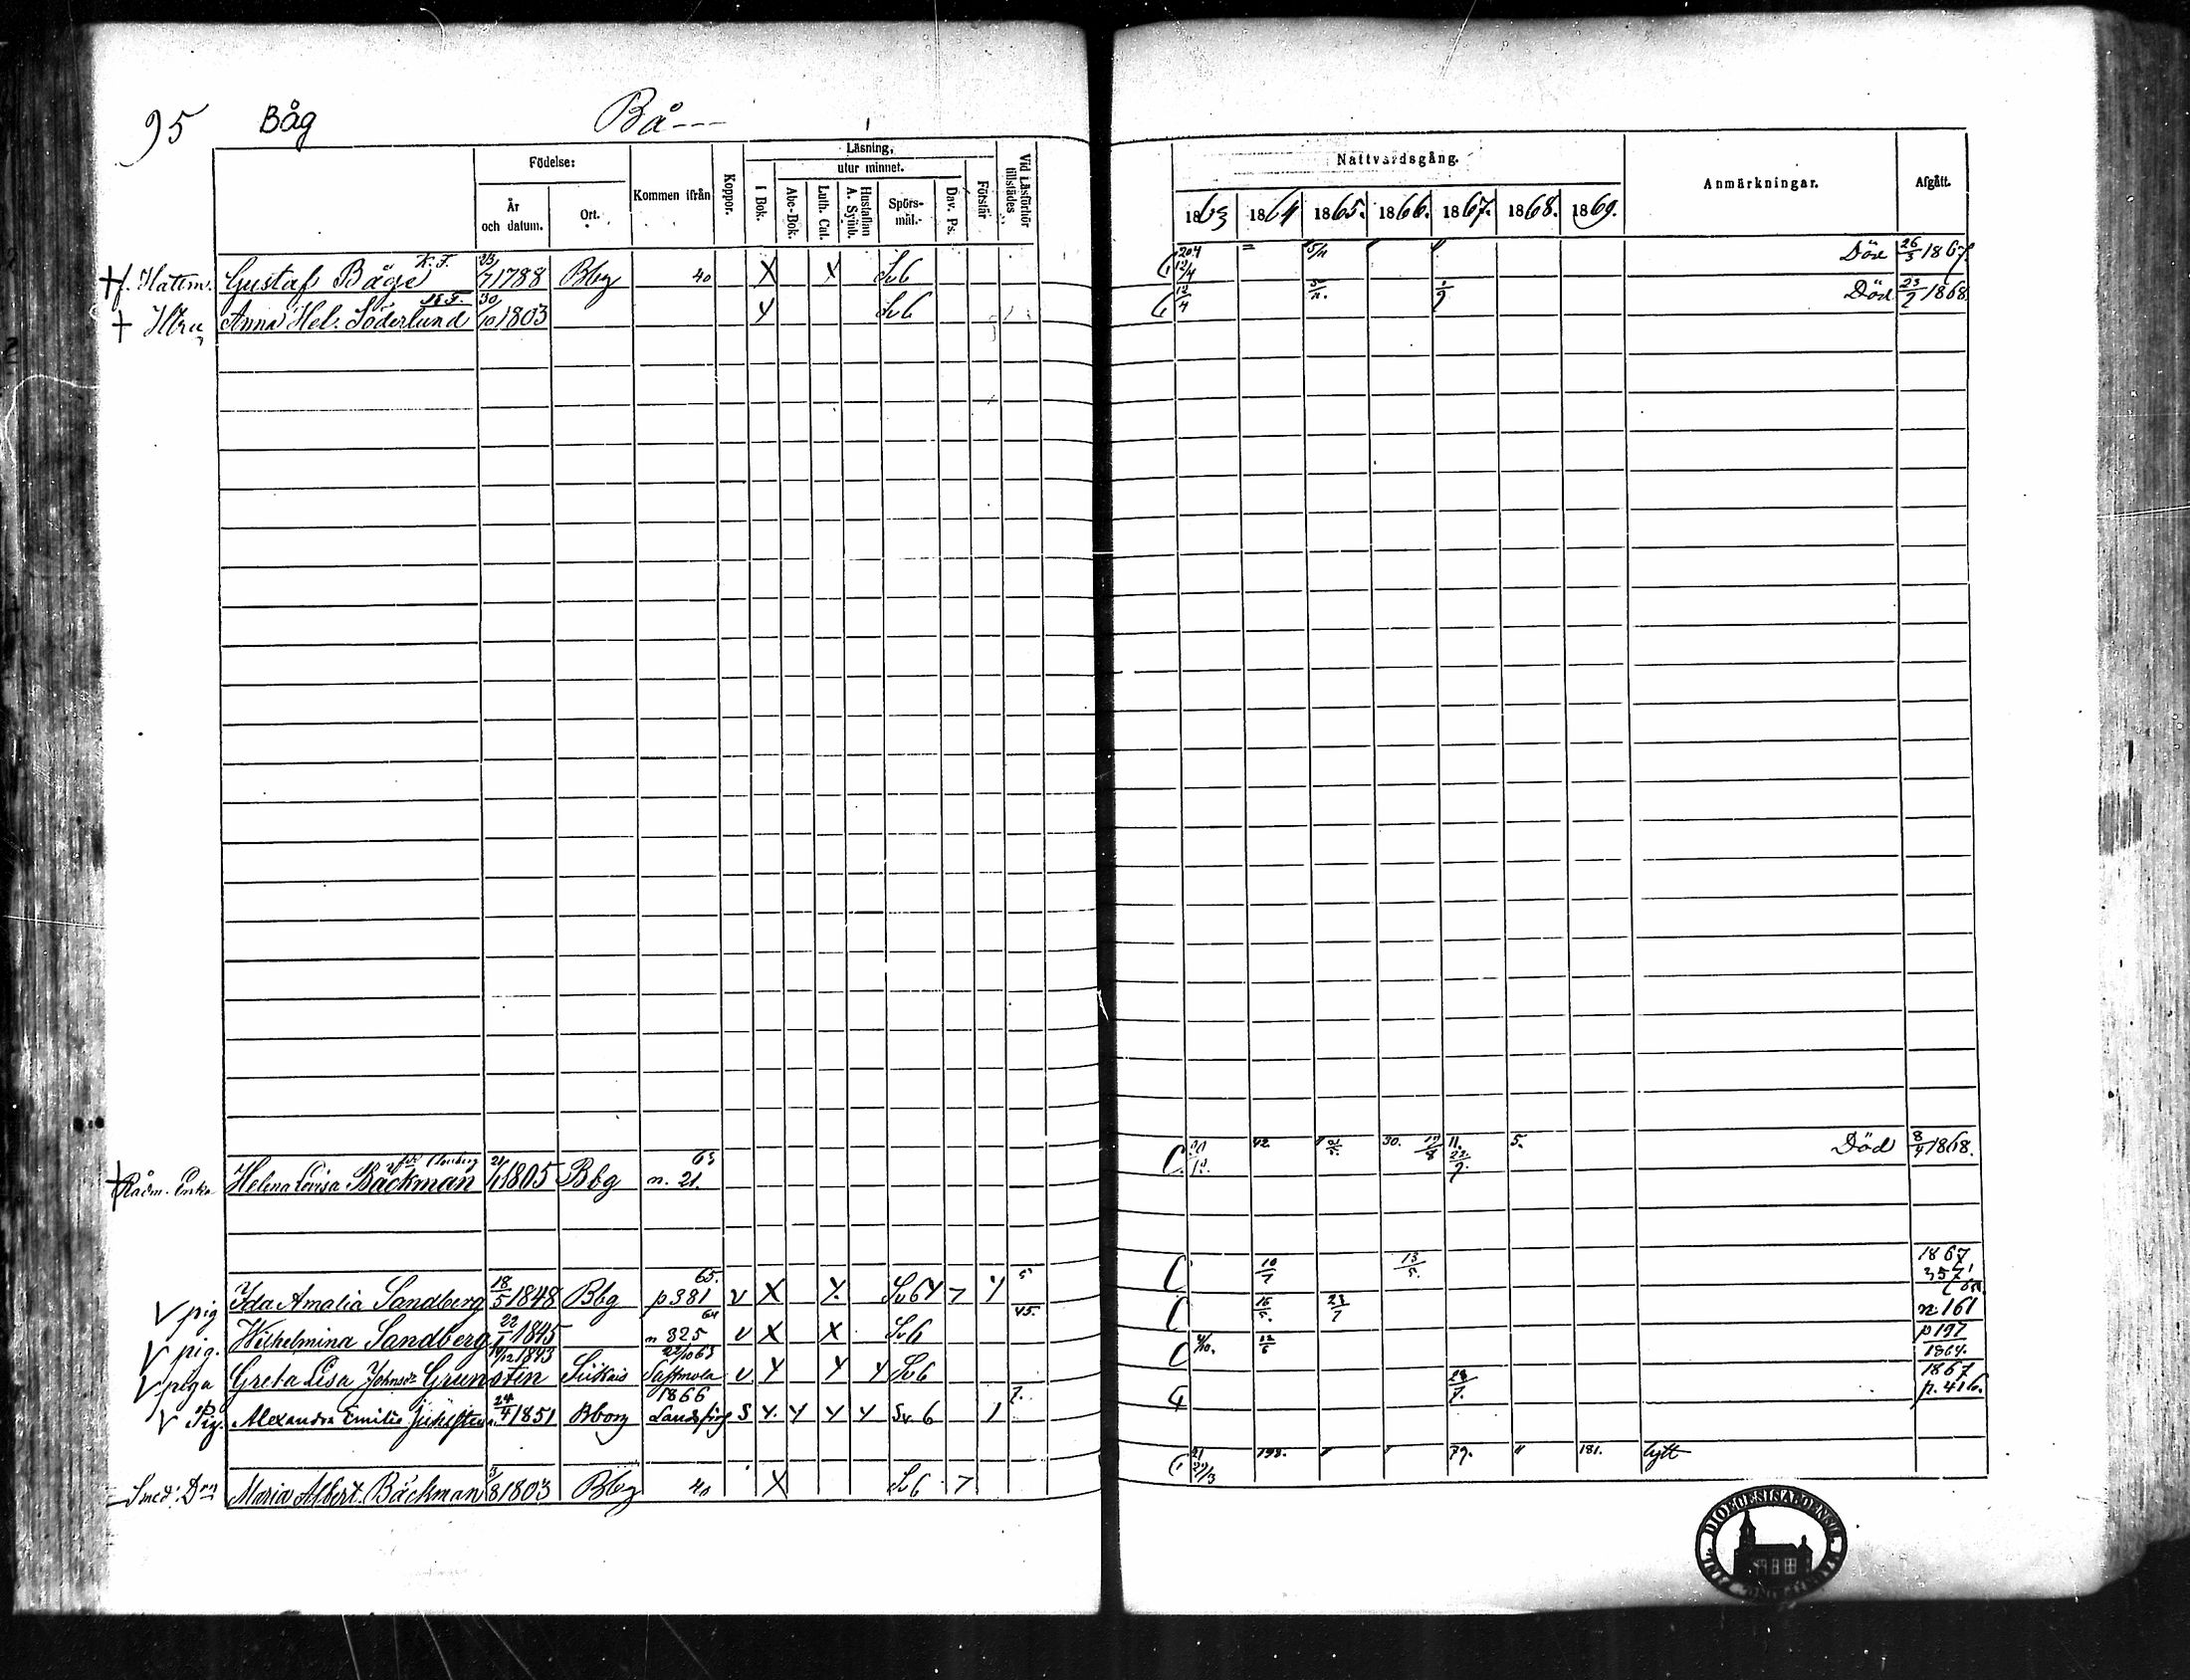 95 Båg Bå---
Läsning,
Födelse: utur minnet. Nattvardsgång.
År och datum. Ort. Kommen ifrån Koppor. I Bok. Abc-Bok. Luth. Cat. Hustaflan A. Symb. Spörs-mål. Dav. Ps. Förstår Vid Läsförhör tillstädes Anmärkningar. Afgått.
1863 1864 1865. 1866. 1867. 1868. 1869.
† f. Hattm. Gustaf Båge K. F. 23/7 1788 Bbg 40 X X Sv 6 12/4 5/11 Död 26/3 1867.
† Hru Anna Hel. Söderlund 30/10 1803 Y Sv 6 12/4 5/11. Död 23/2 1868.
† Rådm. Enka Helena Lovisa Bäckman 21/1 1805 Bbg 63 n. 21. C. 42. 30. 17/8 11. 22/7. 5. Död 8/4 1868.
V pig Ida Amalia Sandberg 18/5 1848 Bbg 65. p 381 v X X Sv 6 Y 7 Y 5 C 10/7 13/5. 1867 357
V pig. Wilhelmina Sandberg 22/1 1845 64 n 825 v X X Sv 6 45. C 15/5. 23/7 n. 161
V piga Greta Lisa Johnsdr Grunsten 19/12 1843 22/10 63 v Y Y Y Sv 6 C 4/10. 12/6 p 197 1864.
V Pig. Alexandra Emilia 24/4 1851 Bborg 1866 S Y. Y Y Y Sv. 6 1 7. 28/7. 1867 p. 416.
Smed. Dr Maria Albert. Bäckman 8 1803 Bbg 40 X Sv 6 7 21 29/3 198. " " 79. " 181. lytt